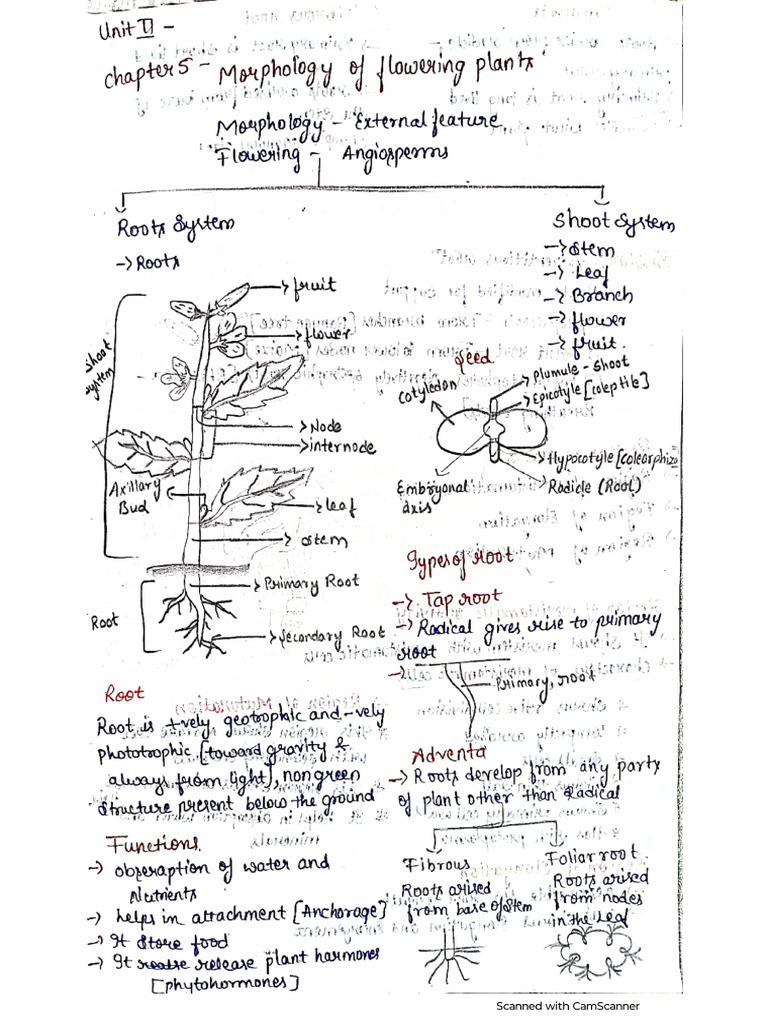 Unit II -
Chapter 5 - Morphology of flowering plants
Morphology - External feature
Flowering - Angiosperms
Roots System
-> Roots
Shoot System
-> Stem
-> Leaf
-> Branch
-> flower
-> fruit.
Shoot System
fruit
flower
Node
internode
Axillary Bud
leaf
stem
Primary Root
Root
Secondary Root
Seed
Cotyledon
Plumule - Shoot
Epicotyle [coleptile]
Hypocotyle [coleorphiza
Radicle (Root)
Embryonal axis
Root
Root is +vely geotrophic and -vely
phototrophic [toward gravity &
always from light], non green
structure present below the ground
Functions.
-> obseraption of water and
Nutrients
-> helps in attachment [Anchorage]
-> It store food
-> It release plant harmones
[phytohormones]
Types of root
-> Tap root
-> Radical gives rise to primary
root
->
Primary root
Adventa
-> Roots develop from any parts
of plant other than Radical
Fibrous
Roots arised
from base of stem
Foliar root
Roots arised
from nodes
in the leaf
Scanned with CamScanner